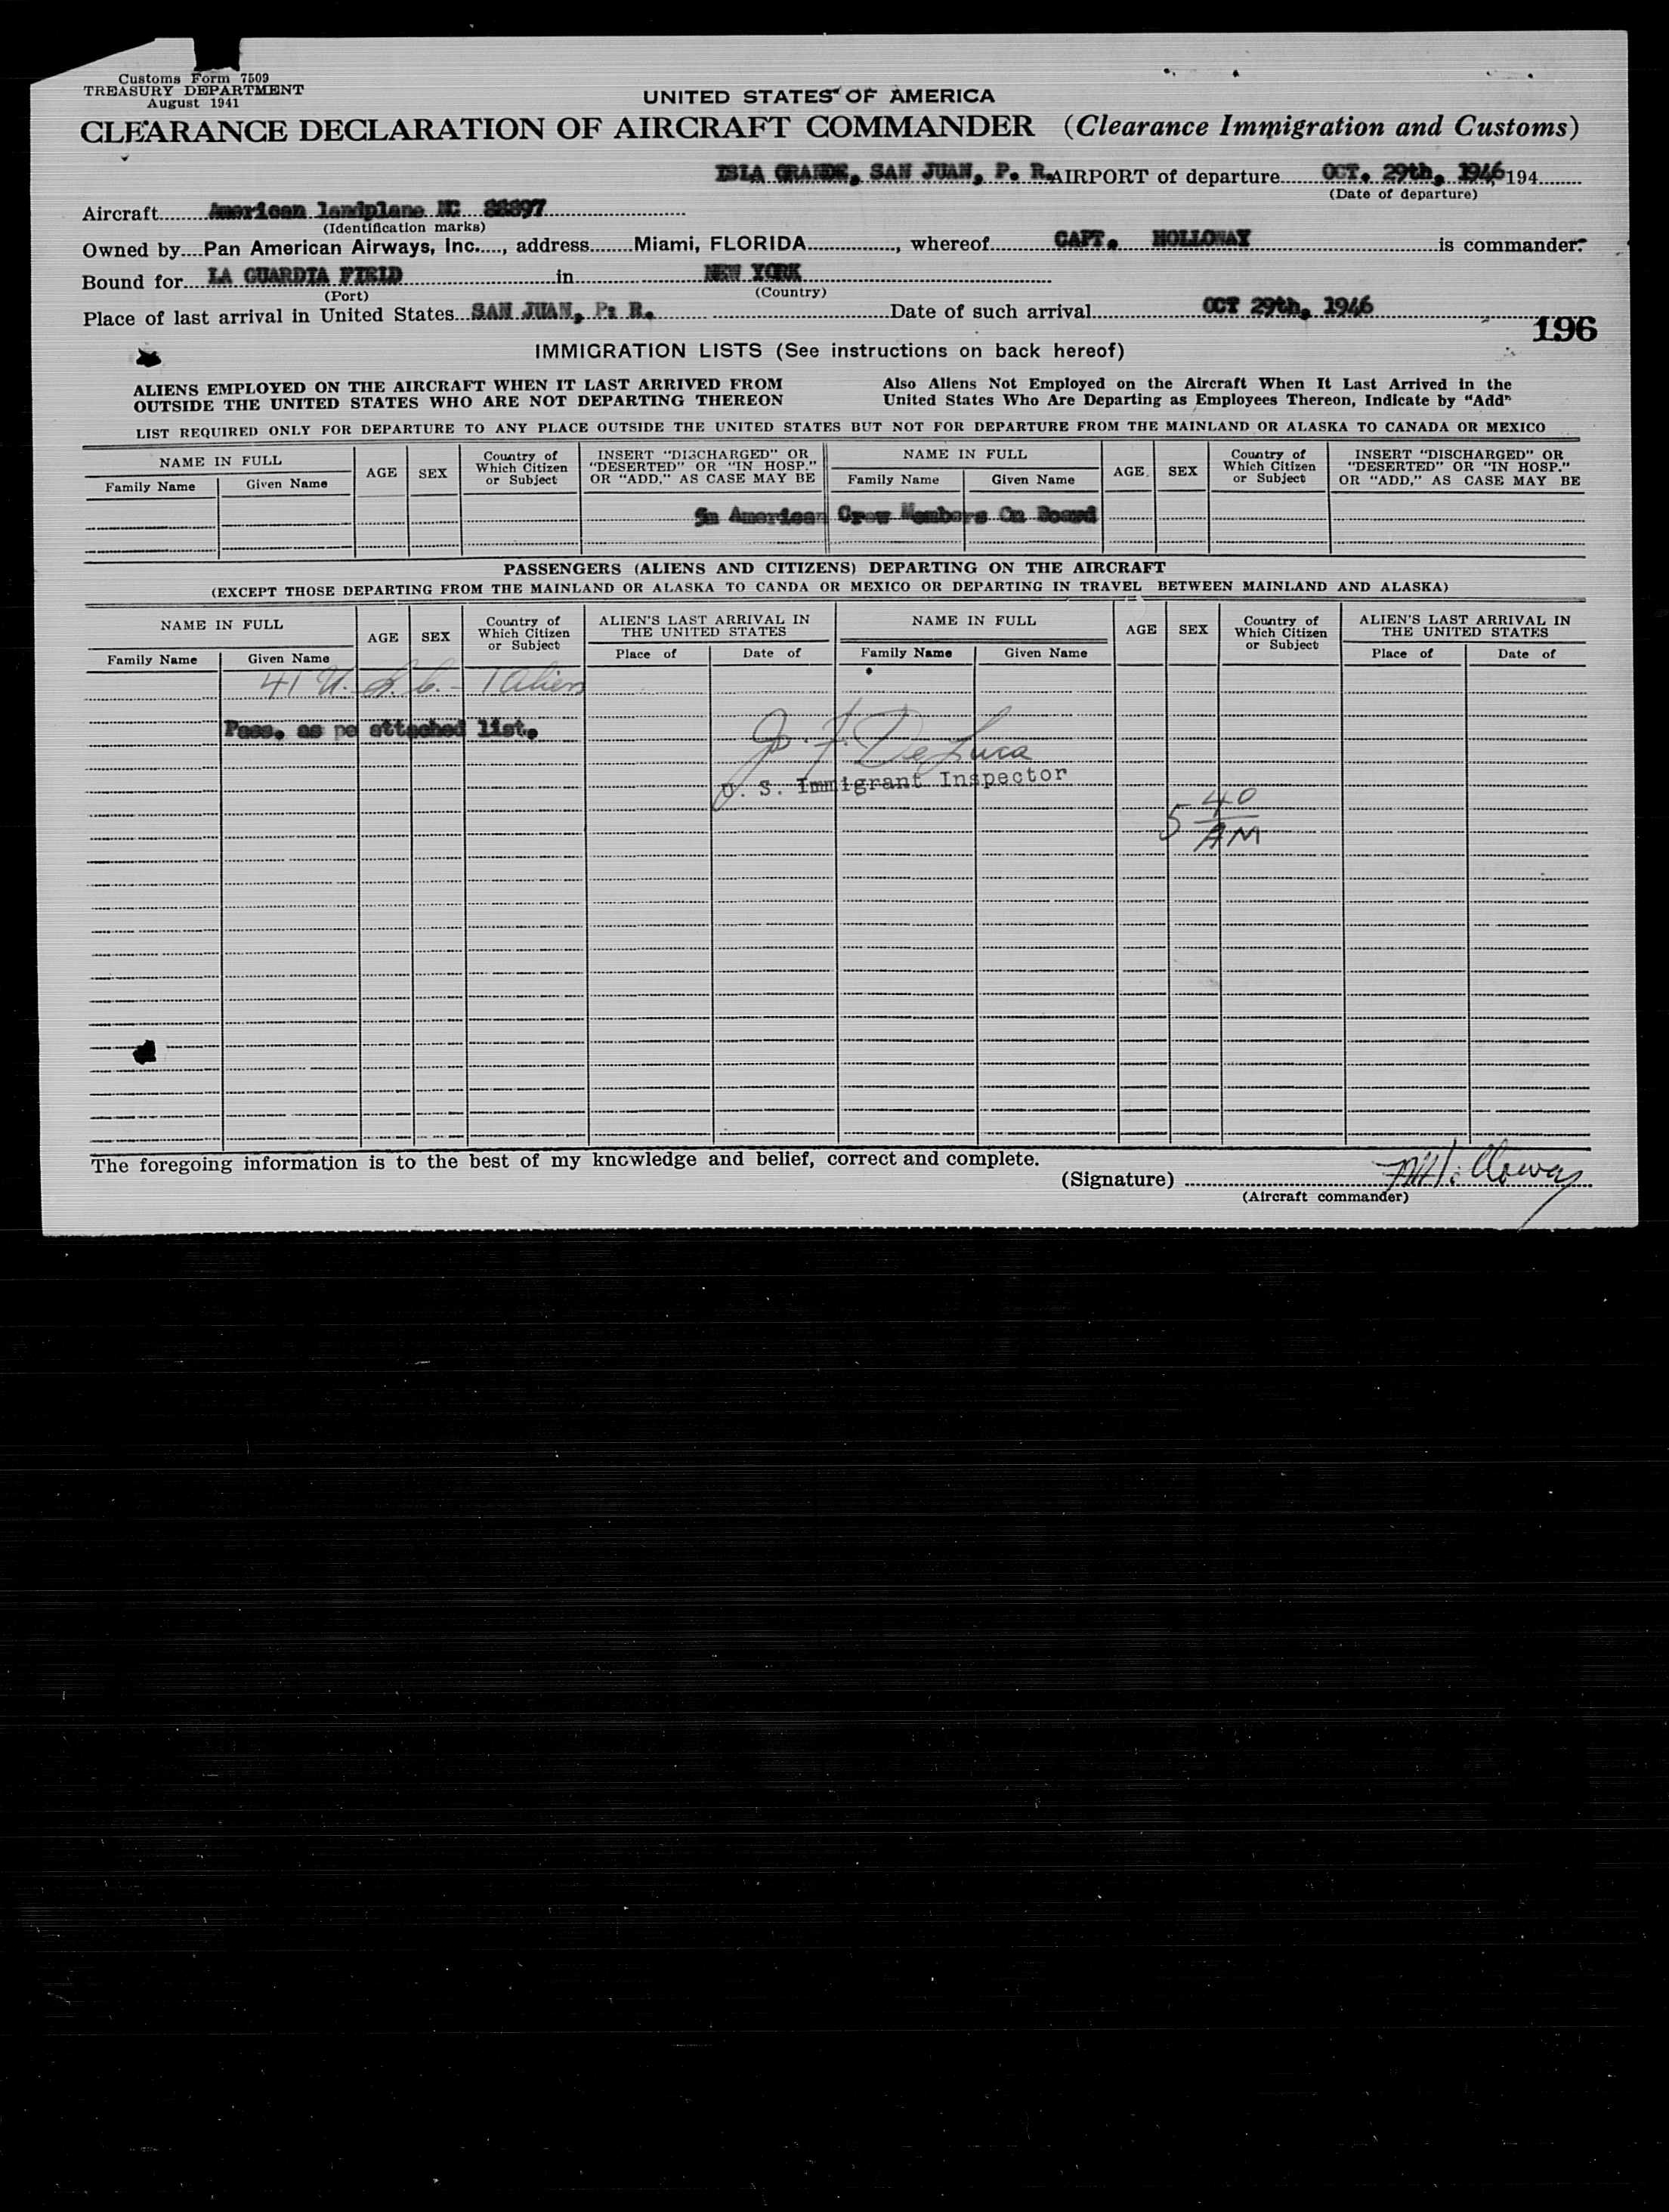 Customs Form 7509
TREASURY DEPARTMENT
August 1941
UNITED STATES OF AMERICA
CLEARANCE DECLARATION OF AIRCRAFT COMMANDER (Clearance Immigration and Customs)
ISLA GRANDE, SAN JUAN, P. R. AIRPORT of departure OCT. 29th, 1946 194
(Date of departure)
Aircraft American landplane NC 88897
(Identification marks)
Owned by Pan American Airways, Inc., address Miami, FLORIDA, whereof CAPT. HOLLOWAY is commander.
Bound for LA GUARDIA FIELD in NEW YORK
(Port) (Country)
Place of last arrival in United States SAN JUAN, P: R. Date of such arrival OCT 29th, 1946
196
IMMIGRATION LISTS (See instructions on back hereof)
ALIENS EMPLOYED ON THE AIRCRAFT WHEN IT LAST ARRIVED FROM
OUTSIDE THE UNITED STATES WHO ARE NOT DEPARTING THEREON
Also Aliens Not Employed on the Aircraft When It Last Arrived in the
United States Who Are Departing as Employees Thereon, Indicate by "Add"
LIST REQUIRED ONLY FOR DEPARTURE TO ANY PLACE OUTSIDE THE UNITED STATES BUT NOT FOR DEPARTURE FROM THE MAINLAND OR ALASKA TO CANADA OR MEXICO
NAME IN FULL
Family Name Given Name
AGE
SEX
Country of
Which Citizen
or Subject
INSERT "DISCHARGED" OR
"DESERTED" OR "IN HOSP."
OR "ADD," AS CASE MAY BE
NAME IN FULL
Family Name Given Name
AGE
SEX
Country of
Which Citizen
or Subject
INSERT "DISCHARGED" OR
"DESERTED" OR "IN HOSP."
OR "ADD," AS CASE MAY BE
American Crew Members On Board
PASSENGERS (ALIENS AND CITIZENS) DEPARTING ON THE AIRCRAFT
(EXCEPT THOSE DEPARTING FROM THE MAINLAND OR ALASKA TO CANDA OR MEXICO OR DEPARTING IN TRAVEL BETWEEN MAINLAND AND ALASKA)
NAME IN FULL
Family Name Given Name
AGE
SEX
Country of
Which Citizen
or Subject
ALIEN'S LAST ARRIVAL IN
THE UNITED STATES
Place of Date of
NAME IN FULL
Family Name Given Name
AGE
SEX
Country of
Which Citizen
or Subject
ALIEN'S LAST ARRIVAL IN
THE UNITED STATES
Place of Date of
41 U. S. C. - 1 Alien
Pass. as pe attached list.
J. F. DeLuca
U. S. Immigrant Inspector
5 40
AM
The foregoing information is to the best of my knowledge and belief, correct and complete.
(Signature) Holloway
(Aircraft commander)